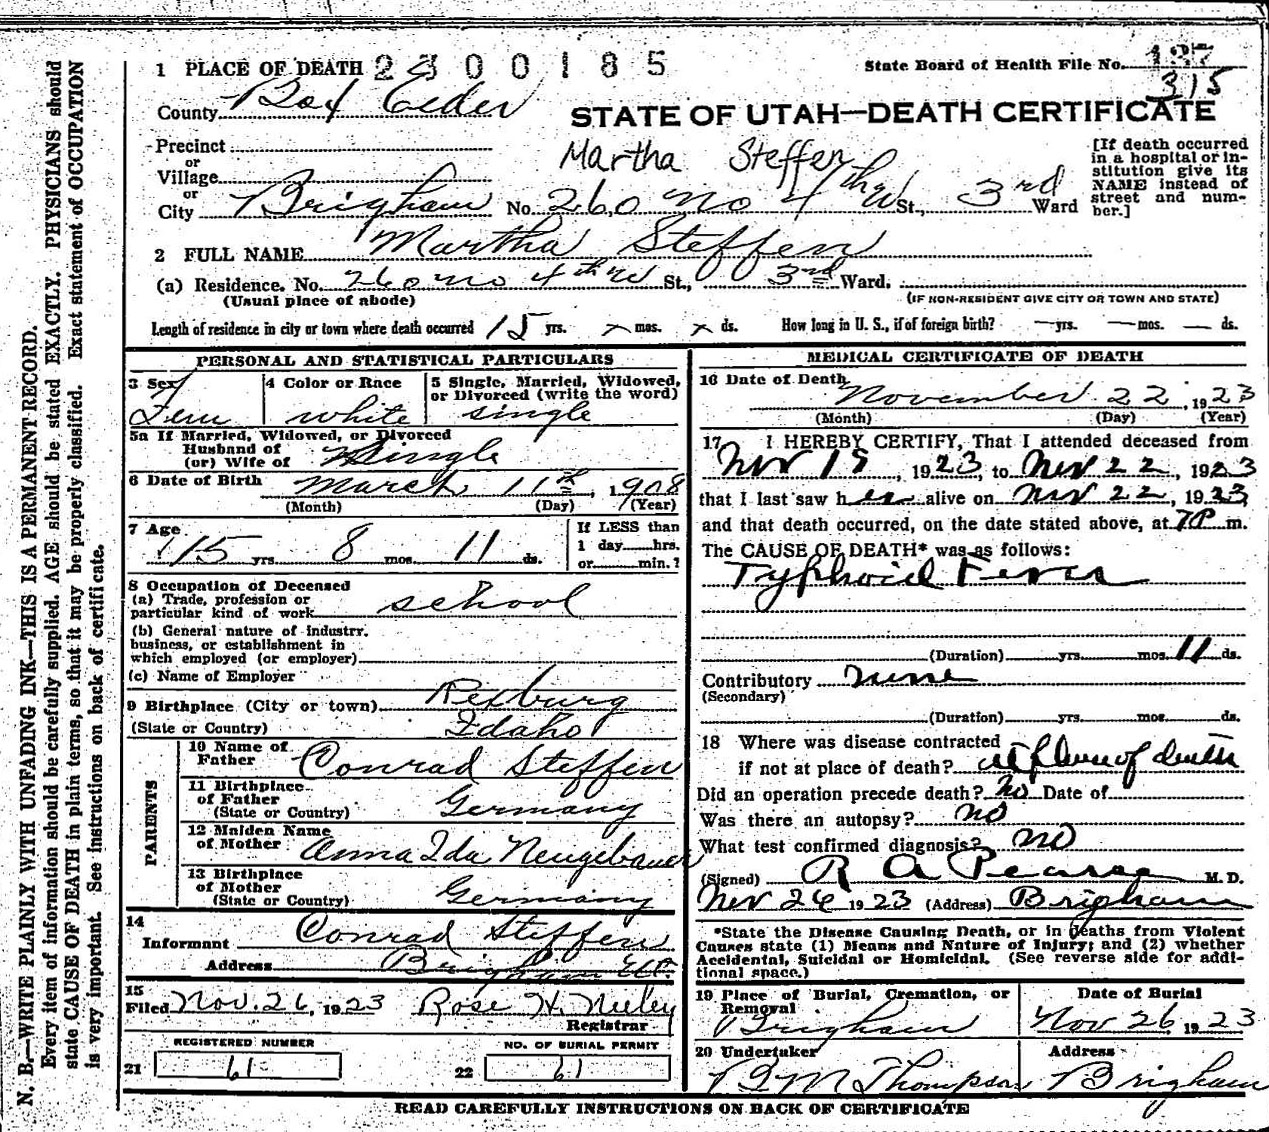 1 PLACE OF DEATH 2300185
State Board of Health File No. 137
315
County Box Elder
STATE OF UTAH—DEATH CERTIFICATE
Precinct
or
Village
or
City Brigham No. 260 no 4th W St., 3rd Ward
Martha Steffen
[If death occurred in a hospital or institution give its NAME instead of street and number.]
2 FULL NAME Martha Steffen
(a) Residence. No. 260 no 4th W St., 3rd Ward.
(Usual place of abode) (IF NON-RESIDENT GIVE CITY OR TOWN AND STATE)
Length of residence in city or town where death occurred 15 yrs. x mos. x ds. How long in U. S., if of foreign birth? — yrs. — mos. — ds.
PERSONAL AND STATISTICAL PARTICULARS
3 Sex Fem
4 Color or Race white
5 Single, Married, Widowed, or Divorced (write the word) single
5a If Married, Widowed, or Divorced
Husband of
(or) Wife of Single
6 Date of Birth March 11th, 1908
(Month) (Day) (Year)
7 Age 15 yrs. 8 mos. 11 ds.
If LESS than
1 day......hrs.
or......min.?
8 Occupation of Deceased
(a) Trade, profession or
particular kind of work school
(b) General nature of industry,
business, or establishment in
which employed (or employer)
(c) Name of Employer
9 Birthplace (City or town) Rexburg
(State or Country) Idaho
PARENTS
10 Name of
Father Conrad Steffen
11 Birthplace
of Father
(State or Country) Germany
12 Maiden Name
of Mother Anna Ida Neugebauer
13 Birthplace
of Mother
(State or Country) Germany
14
Informant Conrad Steffen
Address Brigham Ut.
15
Filed Nov. 26, 1923 Rose H. Neeley
Registrar
REGISTERED NUMBER
21 61
NO. OF BURIAL PERMIT
22 61
MEDICAL CERTIFICATE OF DEATH
16 Date of Death November 22, 1923
(Month) (Day) (Year)
17 I HEREBY CERTIFY, That I attended deceased from
Nov 15, 1923, to Nov 22, 1923
that I last saw her alive on Nov 22, 1923,
and that death occurred, on the date stated above, at 7P m.
The CAUSE OF DEATH* was as follows:
Typhoid Fever
(Duration) yrs. mos. 11 ds.
Contributory None
(Secondary)
(Duration) yrs. mos. ds.
18 Where was disease contracted
if not at place of death? at place of death
Did an operation precede death? No Date of
Was there an autopsy? no
What test confirmed diagnosis? no
(Signed) R A Pearse M. D.
Nov 26 1923 (Address) Brigham
*State the Disease Causing Death, or in deaths from Violent
Causes state (1) Means and Nature of Injury; and (2) whether
Accidental, Suicidal or Homicidal. (See reverse side for additional space.)
19 Place of Burial, Cremation, or
Removal
Brigham
Date of Burial
Nov 26 1923
20 Undertaker
Thompson
Address
Brigham
READ CAREFULLY INSTRUCTIONS ON BACK OF CERTIFICATE
N. B.—WRITE PLAINLY WITH UNFADING INK—THIS IS A PERMANENT RECORD.
Every item of information should be carefully supplied. AGE should be stated EXACTLY. PHYSICIANS should
state CAUSE OF DEATH in plain terms, so that it may be properly classified. Exact statement of OCCUPATION
is very important. See instructions on back of certificate.